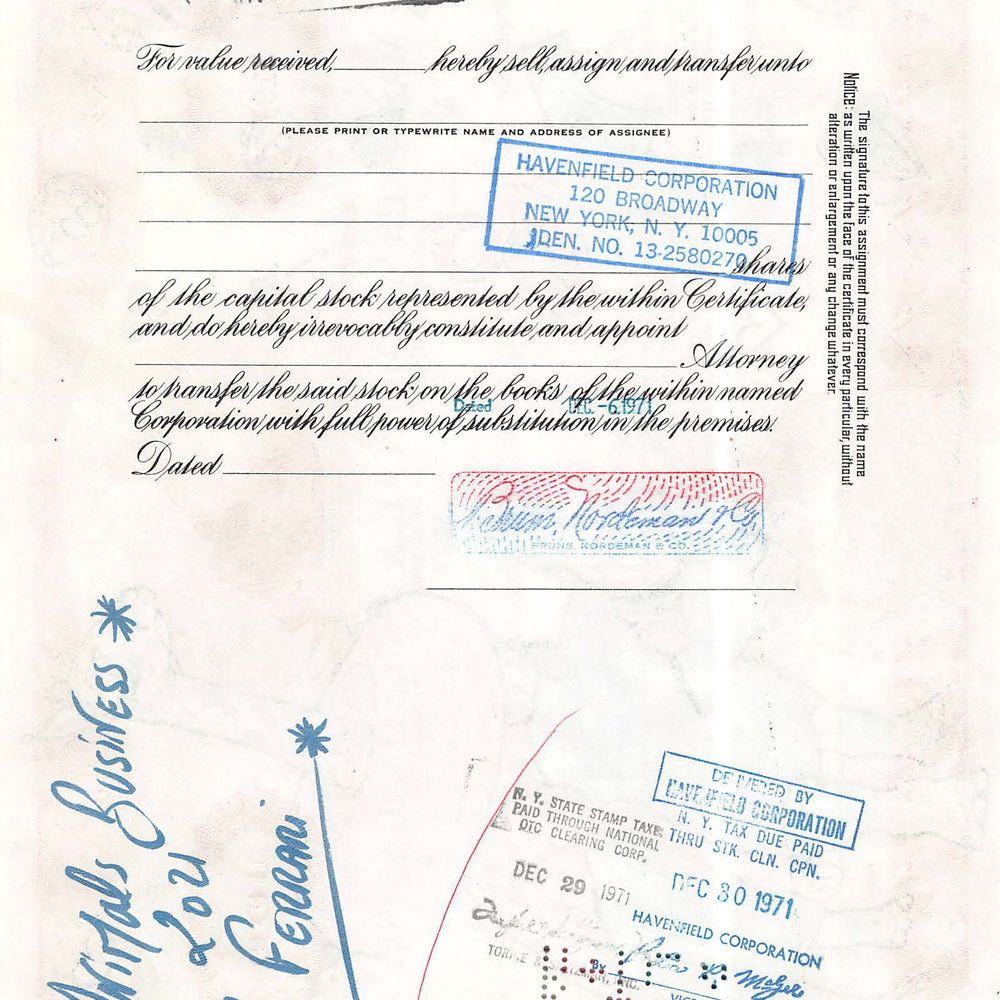 For value received, hereby sell, assign and transfer unto
(PLEASE PRINT OR TYPEWRITE NAME AND ADDRESS OF ASSIGNEE)
HAVENFIELD CORPORATION
120 BROADWAY
NEW YORK, N. Y. 10005
IDEN. NO. 13-2580270
shares
of the capital stock represented by the within Certificate,
and do hereby irrevocably constitute and appoint
Attorney
to transfer the said stock on the books of the within named
Dated DEC -6 1971
Corporation with full power of substitution in the premises.
Dated
Notice: The signature to this assignment must correspond with the name
as written upon the face of the certificate in every particular, without
alteration or enlargement or any change whatever.
Bruns, Nordeman & Co.
BRUNS, NORDEMAN & CO.
Business
2021
Ferrari
N. Y. STATE STAMP TAXES
PAID THROUGH NATIONAL
OTC CLEARING CORP.
DEC 29 1971
DELIVERED BY
HAVENFIELD CORPORATION
N. Y. TAX DUE PAID
THRU STK. CLN. CPN.
DEC 30 1971
HAVENFIELD CORPORATION
By
INC.